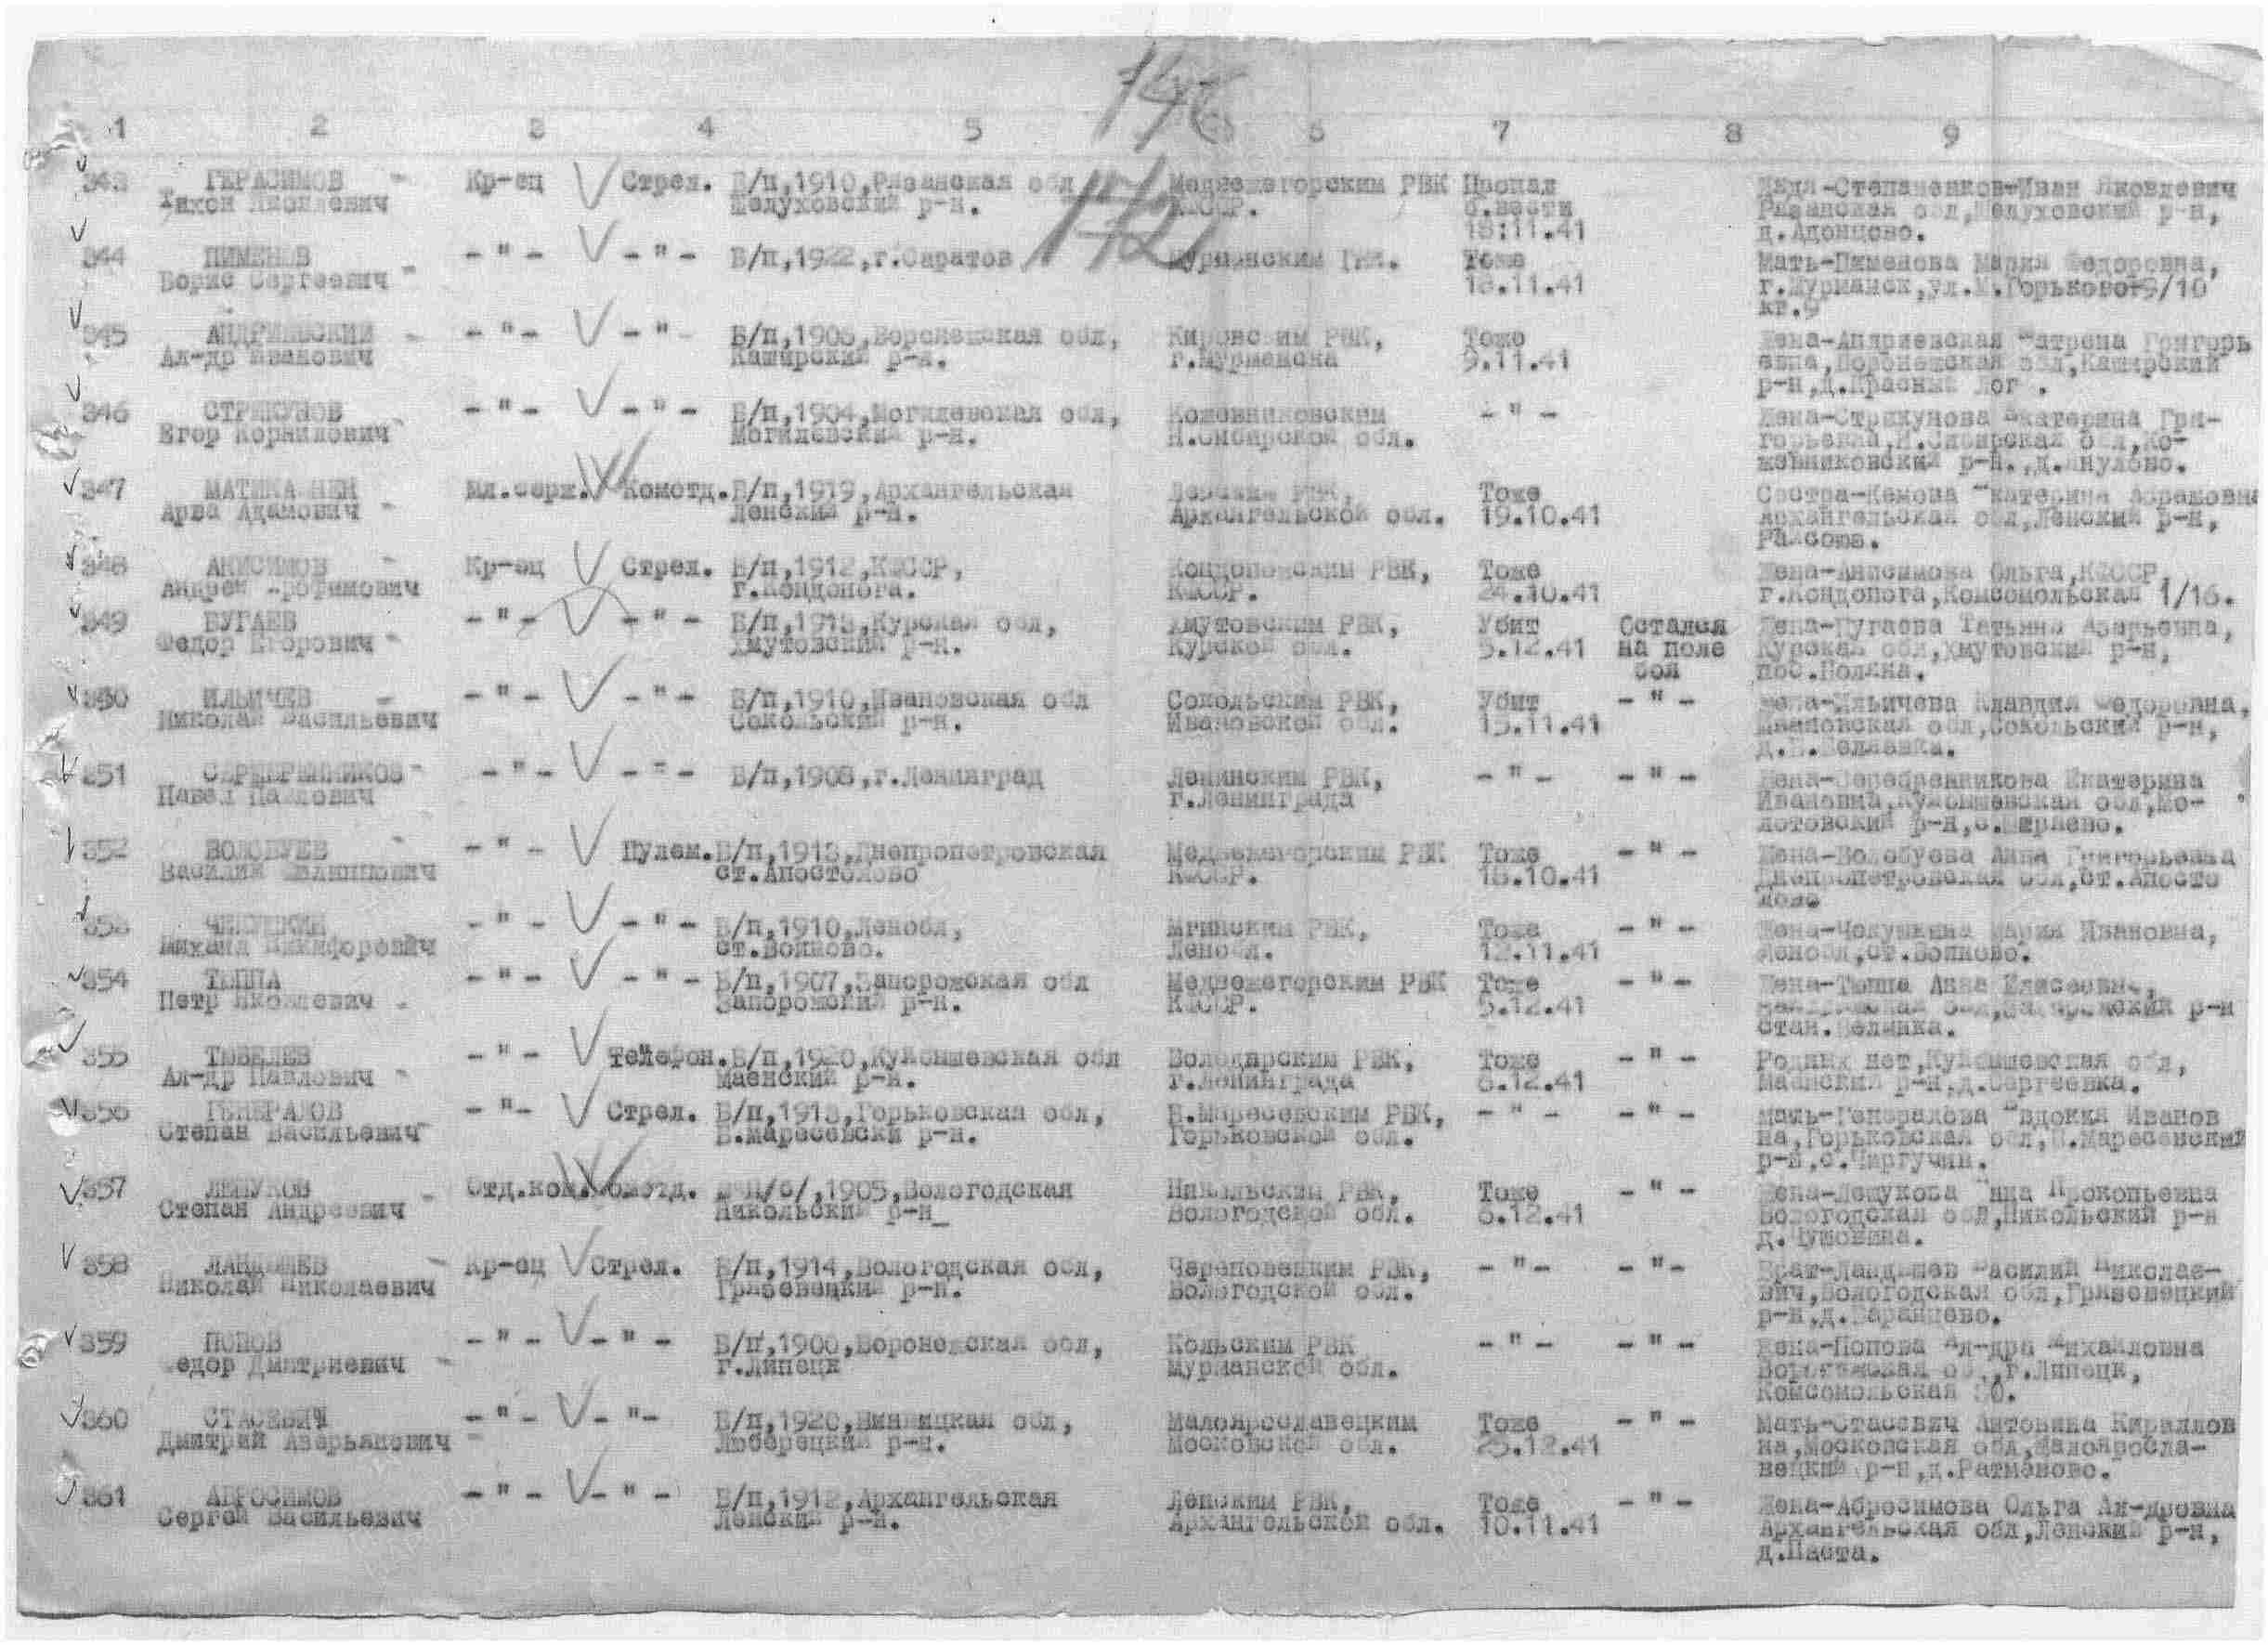 146
172
1 2 3 4 5 6 7 8 9
343 ГЕРАСИМОВ Кр-ец Стрел. Б/п,1910,Рязанская обл Медвежегорским РВК Пропал Дядя-Степаненков-Иван Яковлевич
Тихон Яковлевич Шелуховский р-н. КФССР. б.вести Рязанская обл,Шелуховский р-н,
18.11.41 д.Адонцово.
344 ПИМЕНОВ -"- -"- Б/п,1922,г.Саратов Мурманским ГВК. Тоже Мать-Пименова Мария Федоровна,
Борис Сергеевич 18.11.41 г.Мурманск,ул.М.Горького-9/10
кв.9
345 АНДРИЕВСКИЙ -"- -"- Б/п,1906,Воронежская обл, Кировским РВК, Тоже Жена-Андриевская Матрена Григорь
Ал-др Иванович Каширский р-н. г.Мурманска 9.11.41 евна,Воронежская обл,Каширский
р-н,д.Красный Лог.
346 СТРИКУНОВ -"- -"- Б/п,1904,Могилевская обл, Кожевниковским -"- Жена-Стрикунова Екатерина Гри-
Егор Корнилович Могилевский р-н. Н.Сибирской обл. горьевна,Н.Сибирская обл,Ко-
жевниковский р-н.,
347 МАТИКАЙНЕН Мл.серж. Комотд. Б/п,1919,Архангельская Ленским РВК, Тоже Сестра-Кемова Екатерина Абрамовна
Арва Адамович Ленский р-н. Архангельской обл. 19.10.41 Архангельская обл,Ленский р-н,
348 АНИСИМОВ Кр-ец Стрел. Б/п,1912,КФССР, Кондопожским РВК, Тоже Жена-Анисимова Ольга,КФССР,
Андрей Трофимович г.Кондопога. КФССР. 24.10.41 г.Кондопога,Комсомольская 1/16.
349 БУГАЕВ -"- -"- Б/п,1913,Курская обл, Хмутовским РВК, Убит Остался Жена-Бугаева Татьяна Азарьевна,
Федор Егорович Хмутовский р-н. Курской обл. 5.12.41 на поле Курская обл,Хмутовский р-н,
боя пос.Поляна.
350 ИЛЬИЧЕВ -"- -"- Б/п,1910,Ивановская обл Сокольским РВК, Убит -"- Жена-Ильичева Клавдия Федоровна,
Николай Васильевич Сокольский р-н. Ивановской обл. 15.11.41 Ивановская обл,Сокольский р-н,
351 СЕРЕБРЕННИКОВ -"- -"- Б/п,1908,г.Ленинград Ленинским РВК, -"- -"- Жена-Серебренникова Екатерина
Павел Павлович г.Ленинграда Ивановна,Куйбышевская обл,Мо-
лотовский р-н,
352 ВОЛОБУЕВ -"- Пулем. Б/п,1913,Днепропетровская Медвежегорским РВК Тоже -"- Жена-Волобуева Анна Григорьевна
Василий Филиппович ст.Апостолово КФССР. 18.10.41 Днепропетровская обл,ст.Апосто
лово
353 ЧЕКУШКИН -"- -"- Б/п,1910,Ленобл, Мгинским РВК, Тоже -"- Жена-Чекушкина Мария Ивановна,
Михаил Никифорович ст.Войбово. Ленобл. 12.11.41 Ленобл,
354 ТЮППА -"- -"- Б/п,1907,Запорожская обл Медвежегорским РВК Тоже -"- Жена-Тюппа Анна Елисеевна,
Петр Яковлевич Запорожский р-н. КФССР. 5.12.41 Запорожская обл,Запорожский р-н
стан.Белянка.
355 ТЮБЕЛЕВ -"- Телефон. Б/п,1920,Куйбышевская обл Володарским РВК, Тоже -"- Родных нет,Куйбышевская обл,
Ал-др Павлович Маенский р-н. г.Ленинграда 6.12.41 Маенский р-н,д.Сергеевка.
356 ГЕНЕРАЛОВ -"- Стрел. Б/п,1913,Горьковская обл, Б.Маресевским РВК, -"- -"- Мать-Генералова Евдокия Иванов
Степан Васильевич Б.Маресевски р-н. Горьковской обл. на,Горьковская обл,Б.Маресевский
р-н,с.Чиргучин.
357 ЛЕШУКОВ Отд.ком. Комотд. ,1905,Вологодская Никольским РВК, Тоже -"- Жена-Лешукова Прокопьевна
Степан Андреевич Никольский р-н Вологодской обл. 6.12.41 Вологодская обл,Никольский р-н
358 ЛАНДЫШЕВ Кр-ец Стрел. Б/п,1914,Вологодская обл, Череповецким РВК, -"- -"- Брат-Ландышев Василий Николае-
Николай Николаевич Грязовецкий р-н. Вологодской обл. вич,Вологодская обл,Грязовецкий
р-н,д.Баранцево.
359 ПОПОВ -"- -"- Б/п,1900,Воронежская обл, Кольским РВК -"- -"- Жена-Попова Ал-дра Михайловна
Федор Дмитриевич г.Липецк Мурманской обл. Воронежская об.,г.Липецк,
Комсомольская 30.
360 СТАСЕВИЧ -"- -"- Б/п,1920,Винницкая обл, Малоярославецким Тоже -"- Мать-Стасевич Антонина Кириллов
Дмитрий Аверьянович Люберецкий р-н. Московской обл. 25.12.41 на,Московская обл,Малояросла-
вецкий р-н,д.Ратманово.
361 АБРОСИМОВ -"- -"- Б/п,1912,Архангельская Ленским РВК, Тоже -"- Жена-Абросимова Ольга Ал-дровна
Сергей Васильевич Ленский р-н. Архангельской обл. 10.11.41 Архангельская обл,Ленский р-н,
д.Паста.